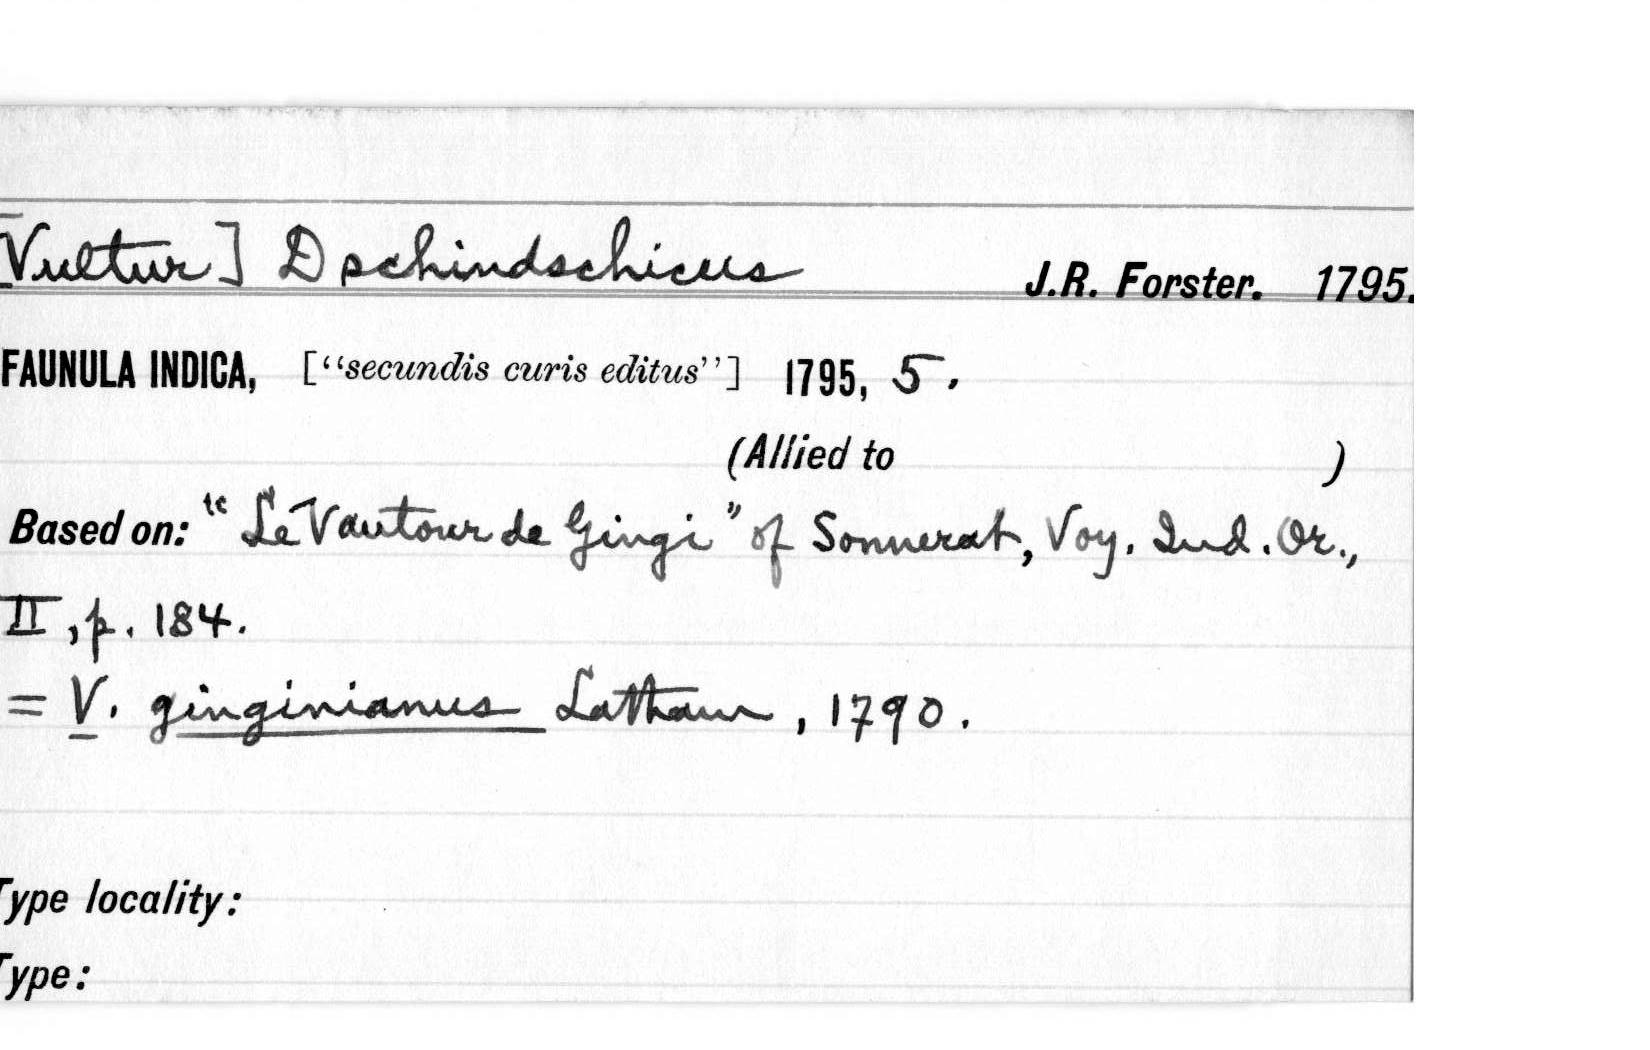 [Vultur] Dschindschicus J.R. Forster. 1795.
FAUNULA INDICA, ["secundis curis editus"] 1795, 5.
(Allied to )
Based on: "Le Vautour de Gingi" of Sonnerat, Voy. Ind. Or.,
II, p. 184.
= V. ginginianus Latham, 1790.
Type locality:
Type: